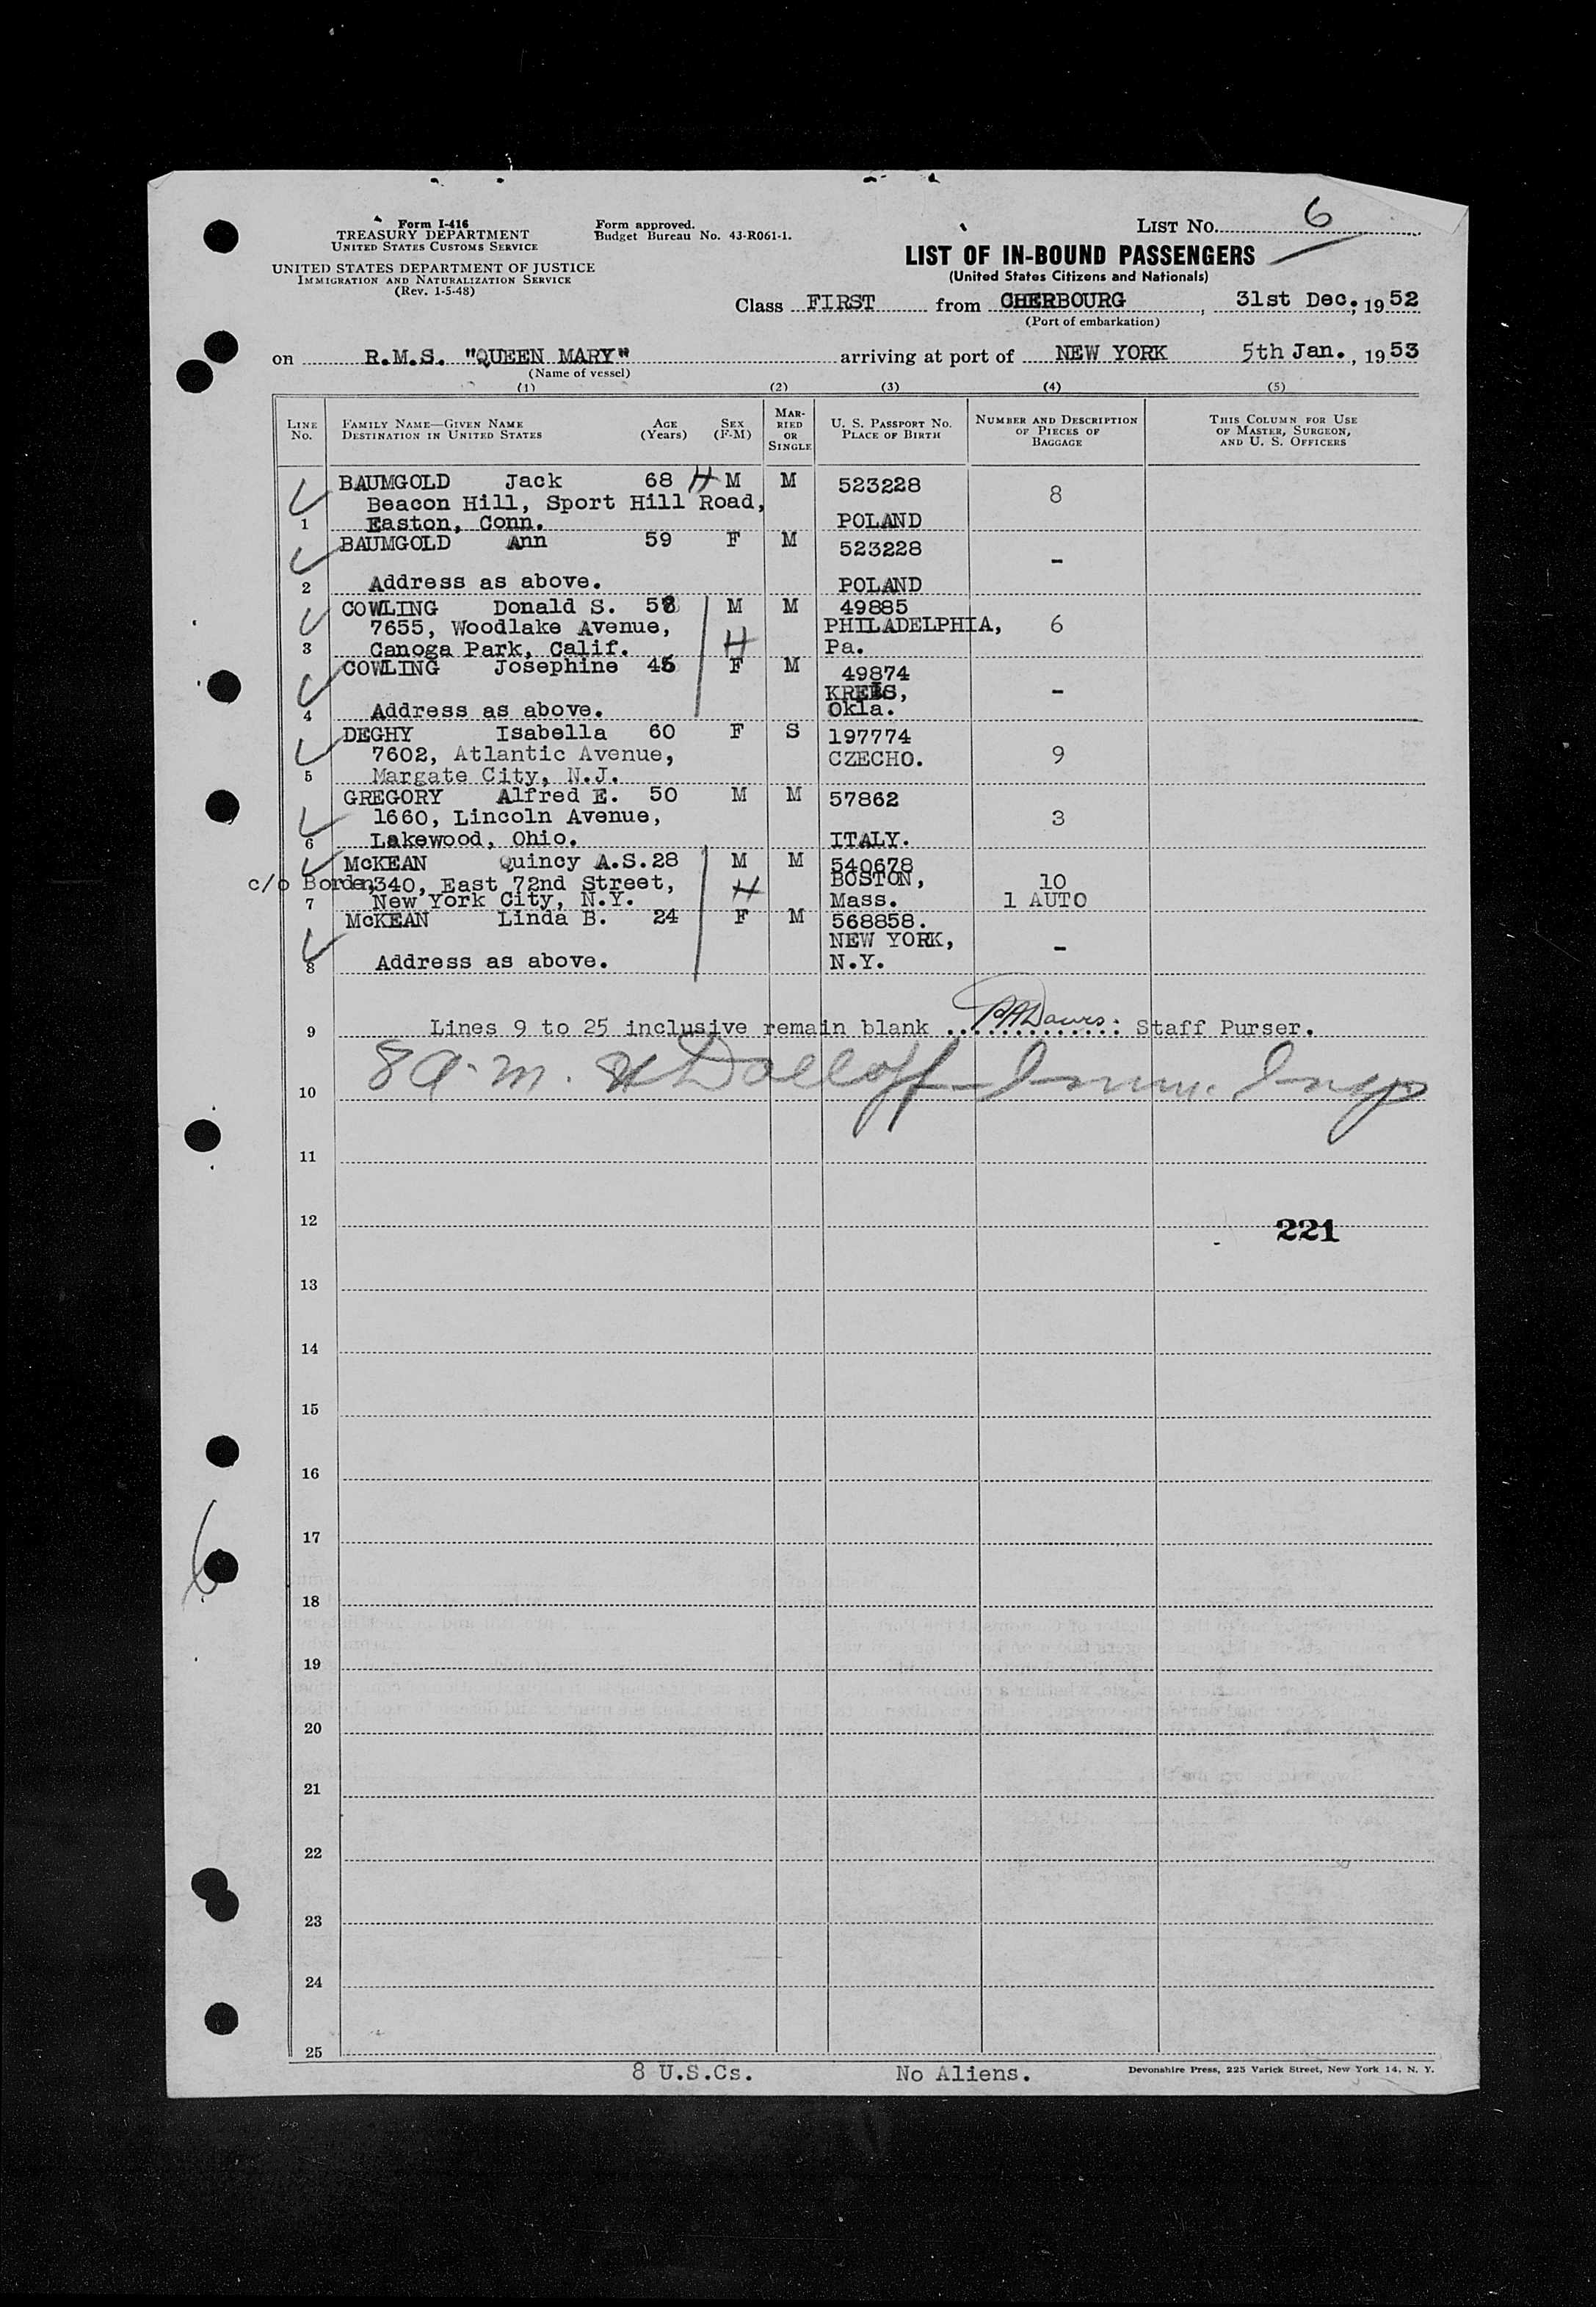 Form I-416
TREASURY DEPARTMENT
UNITED STATES CUSTOMS SERVICE
UNITED STATES DEPARTMENT OF JUSTICE
IMMIGRATION AND NATURALIZATION SERVICE
(Rev. 1-5-48)
Form approved.
Budget Bureau No. 43-R061-1.
LIST No. 6
LIST OF IN-BOUND PASSENGERS
(United States Citizens and Nationals)
Class FIRST from CHERBOURG, 31st Dec., 1952
(Port of embarkation)
on R.M.S. "QUEEN MARY" arriving at port of NEW YORK 5th Jan., 1953
(Name of vessel)
(1) (2) (3) (4) (5)
LINE No. FAMILY NAME—GIVEN NAME DESTINATION IN UNITED STATES AGE (Years) SEX (F-M) MARRIED OR SINGLE U. S. PASSPORT No. PLACE OF BIRTH NUMBER AND DESCRIPTION OF PIECES OF BAGGAGE THIS COLUMN FOR USE OF MASTER, SURGEON, AND U. S. OFFICERS
BAUMGOLD Jack 68 H M M 523228 8
Beacon Hill, Sport Hill Road,
1 Easton, Conn. POLAND
BAUMGOLD Ann 59 F M 523228 -
2 Address as above. POLAND
COWLING Donald S. 58 M M 49885
7655, Woodlake Avenue, H PHILADELPHIA, 6
3 Canoga Park, Calif. Pa.
COWLING Josephine F M 49874
KREBS, -
4 Address as above. Okla.
DEGHY Isabella 60 F S 197774
7602, Atlantic Avenue, CZECHO. 9
5 Margate City, N.J.
GREGORY Alfred E. 50 M M 57862
1660, Lincoln Avenue, 3
6 Lakewood, Ohio. ITALY.
McKEAN Quincy A.S. 28 M M 540678
c/o Borden, 340, East 72nd Street, H BOSTON, 10
7 New York City, N.Y. Mass. 1 AUTO
McKEAN Linda B. 24 F M 568858.
NEW YORK, -
8 Address as above. N.Y.
9 Lines 9 to 25 inclusive remain blank Staff Purser.
10 8 a.m. Dolloff - Imm. Insp
11
12 221
13
14
15
16
17
18
19
20
21
22
23
24
25
8 U.S.Cs. No Aliens.
Devonshire Press, 225 Varick Street, New York 14, N. Y.
6